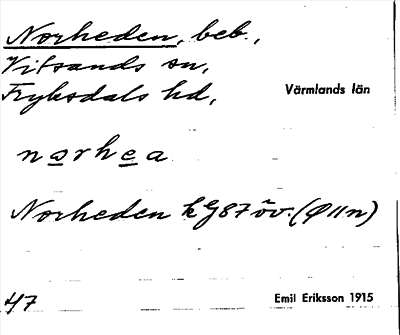 Norheden, beb.,
Vitsands sn,
Fryksdals hd,
Värmlands län
norhea
Norheden kG87öv. (Ø11n)
47
Emil Eriksson 1915